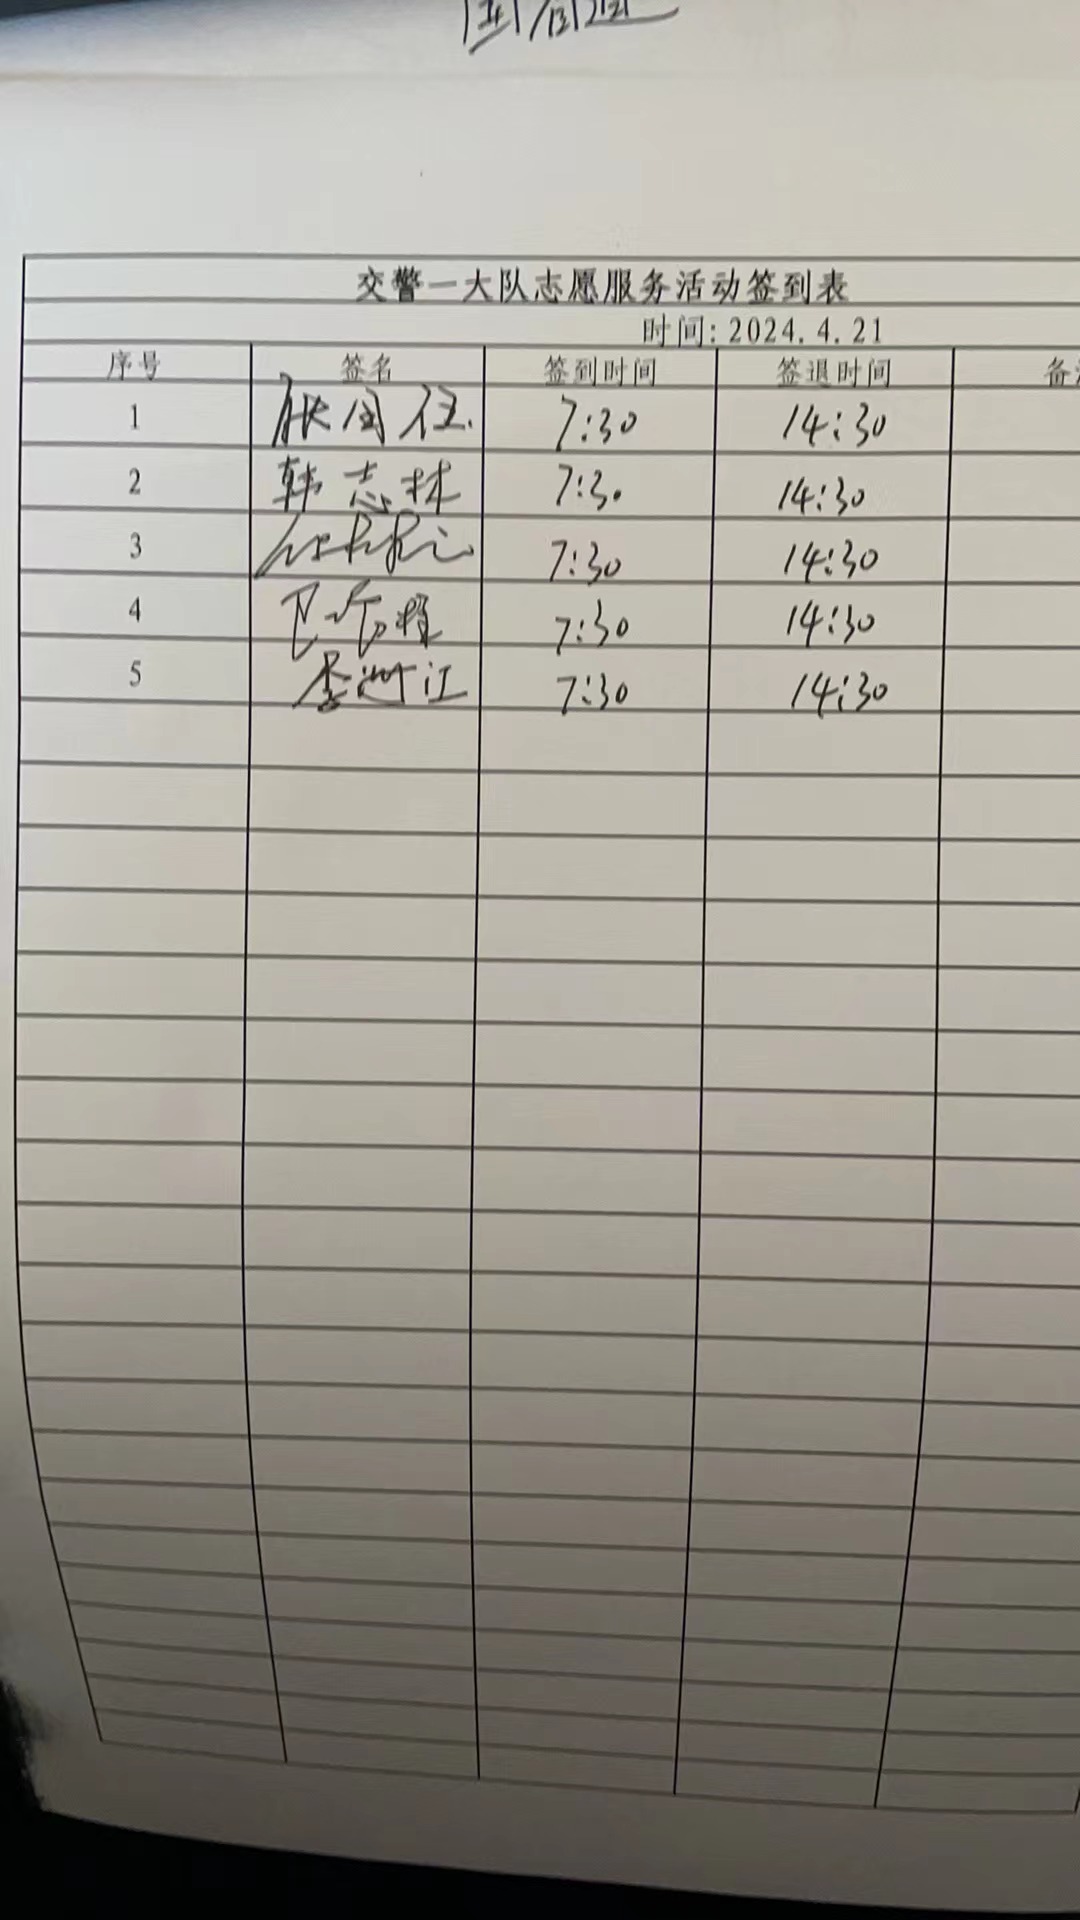 交警一大队志愿服务活动签到表
时间:2024.4.21
序号 签名 签到时间 签退时间 备
1 7:30 14:30
2 韩志林 7:30 14:30
3 7:30 14:30
4 7:30 14:30
5 李浙江 7:30 14:30